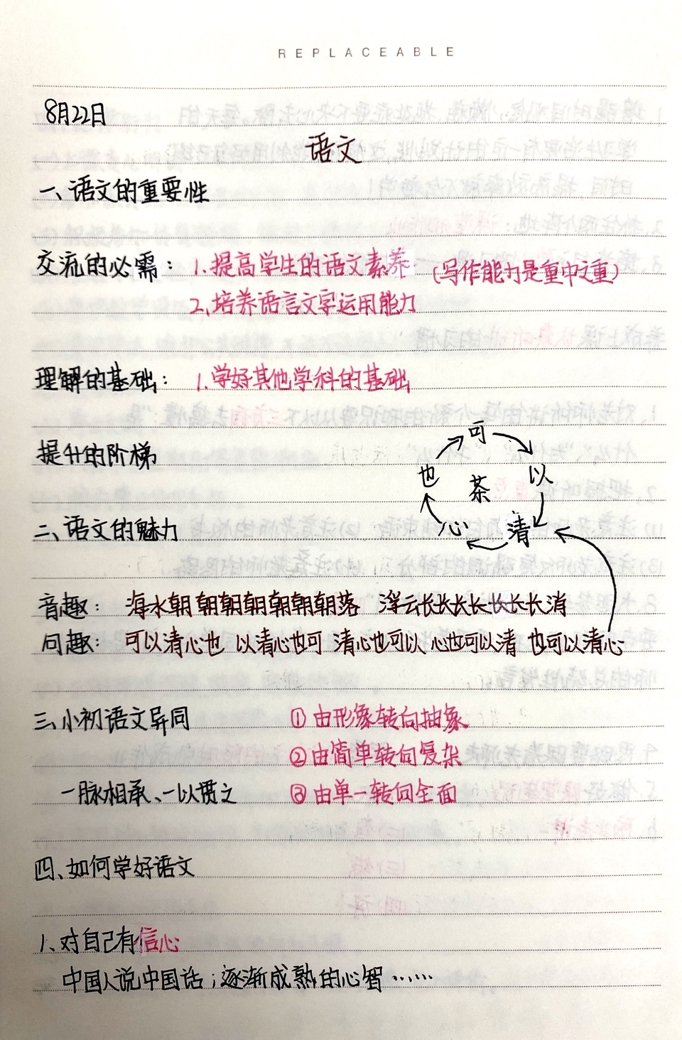 REPLACEABLE
8月22日
语文
一、语文的重要性
交流的必需：1.提高学生的语文素养：(写作能力是重中之重)
2.培养语言文字运用能力
理解的基础：1.学好其他学科的基础
提升的阶梯
可
也 茶 以
心 清
二、语文的魅力
音趣：海水朝朝朝朝朝朝朝落 浮云长长长长长长长消
问趣：可以清心也 以清心也可 清心也可以 心也可以清 也可以清心
三、小初语文异同 ①由形象转向抽象
②由简单转向复杂
一脉相承、一以贯之 ③由单一转向全面
四、如何学好语文
1.对自己有信心
中国人说中国话；逐渐成熟的心智……